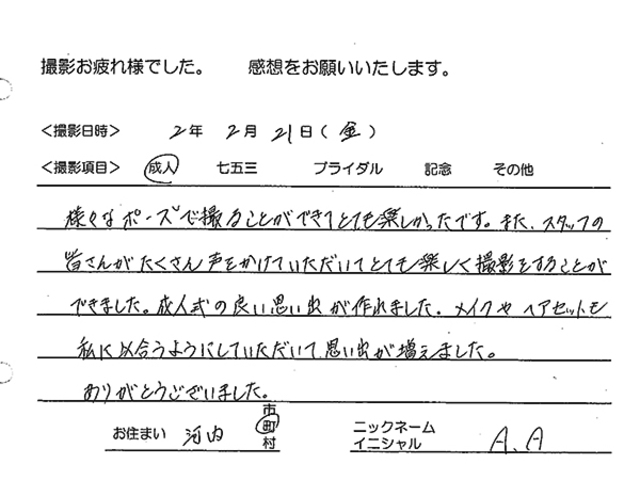 撮影お疲れ様でした。　感想をお願いいたします。
<撮影日時>　2年　2月　21日(金)
<撮影項目>　成人　七五三　ブライダル　記念　その他
様々なポーズで撮ることができてとても楽しかったです。また、スタッフの
皆さんがたくさん声をかけていただいてとても楽しく撮影をすることが
できました。成人式の良い思い出が作れました。メイクやヘアセットも
私に似合うようにしていただいて思い出が増えました。
ありがとうございました。
お住まい　河内　市町村　ニックネーム イニシャル　A.A